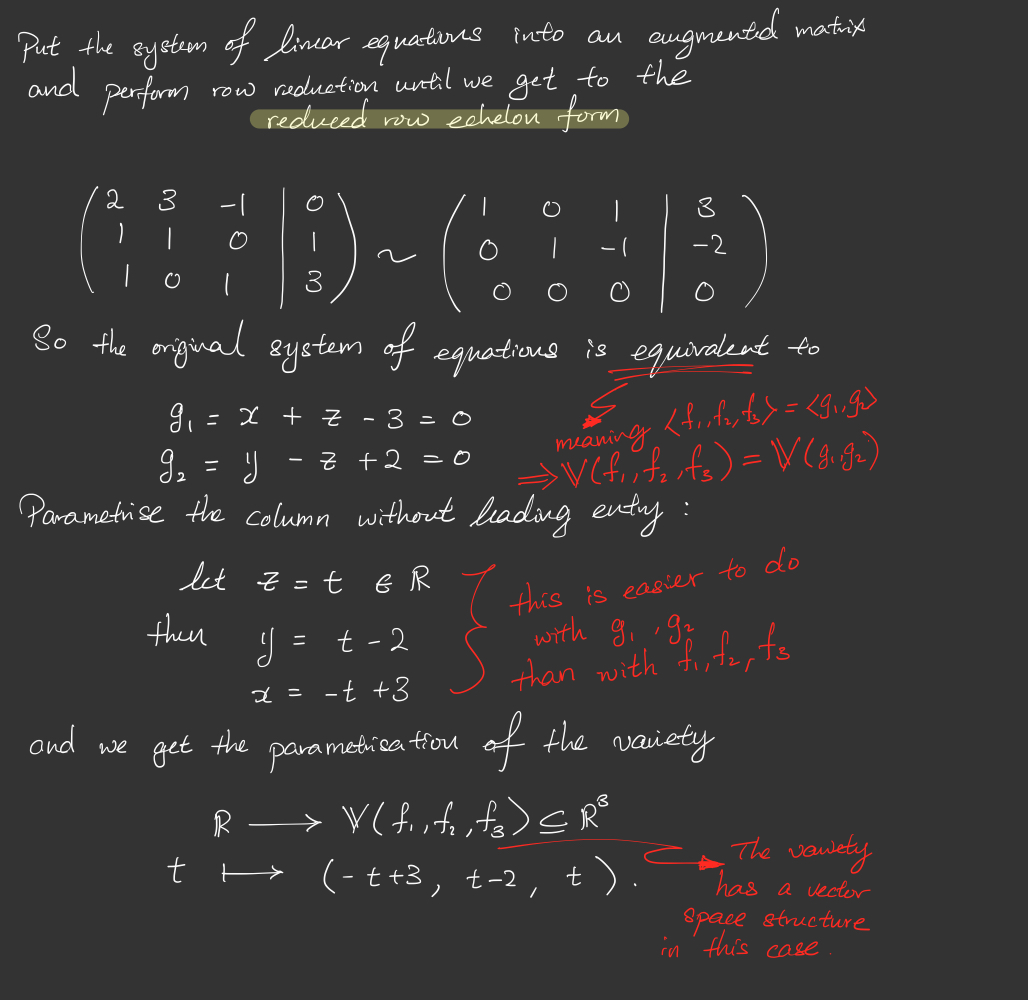 Put the system of linear equations into an augmented matrix
and perform row reduction until we get to the
reduced row echelon form
2 3 -1 | 0
1 1 0 | 1
1 0 1 | 3
~
1 0 1 | 3
0 1 -1 | -2
0 0 0 | 0
So the original system of equations is equivalent to
g₁ = x + z - 3 = 0
g₂ = y - z + 2 = 0
meaning ⟨f₁, f₂, f₃⟩ = ⟨g₁, g₂⟩
⇒ 𝕍(f₁, f₂, f₃) = 𝕍(g₁, g₂)
Parametrise the column without leading entry :
let z = t ∈ ℝ
then y = t - 2
x = -t + 3
this is easier to do
with g₁, g₂
than with f₁, f₂, f₃
and we get the parametrisation of the variety
ℝ ⟶ 𝕍(f₁, f₂, f₃) ⊆ ℝ³
t ⟼ (-t+3, t-2, t).
The variety
has a vector
space structure
in this case.